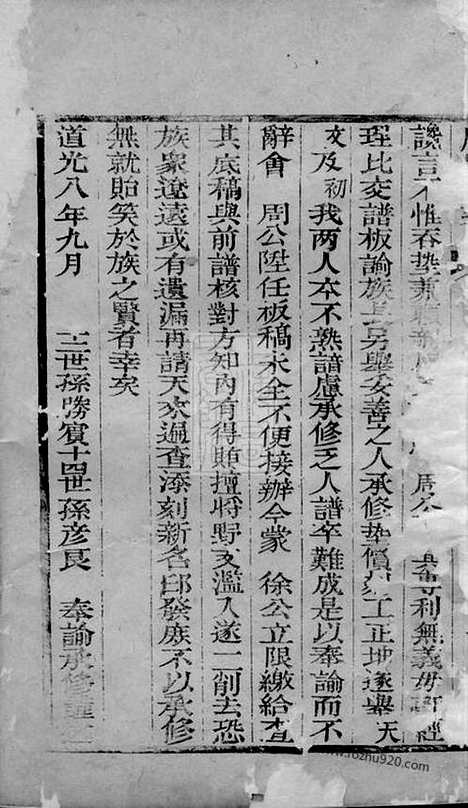 讒言不惟吞墊兼 周公 專利無義毋 經
理比交譜板諭族長另舉妥善之人承修墊償 工正坤遂舉天
及初我两人本不熟諳慮承修乏人譜卒難成是以奉諭而不
辭會 周公陞任板稿未全不便接辦今蒙 徐公立限繳給查
其底稿與前譜核對方知內有得賄擅將野支濫入遂一一削去恐
族衆遼遠或有遺漏再請天 過查添刻新名即發族不以承修
無就貽笑於族之賢者幸矣
道光八年九月 世孫勝賔十四世孫彦良 奉諭承修
www.rozhu920.com